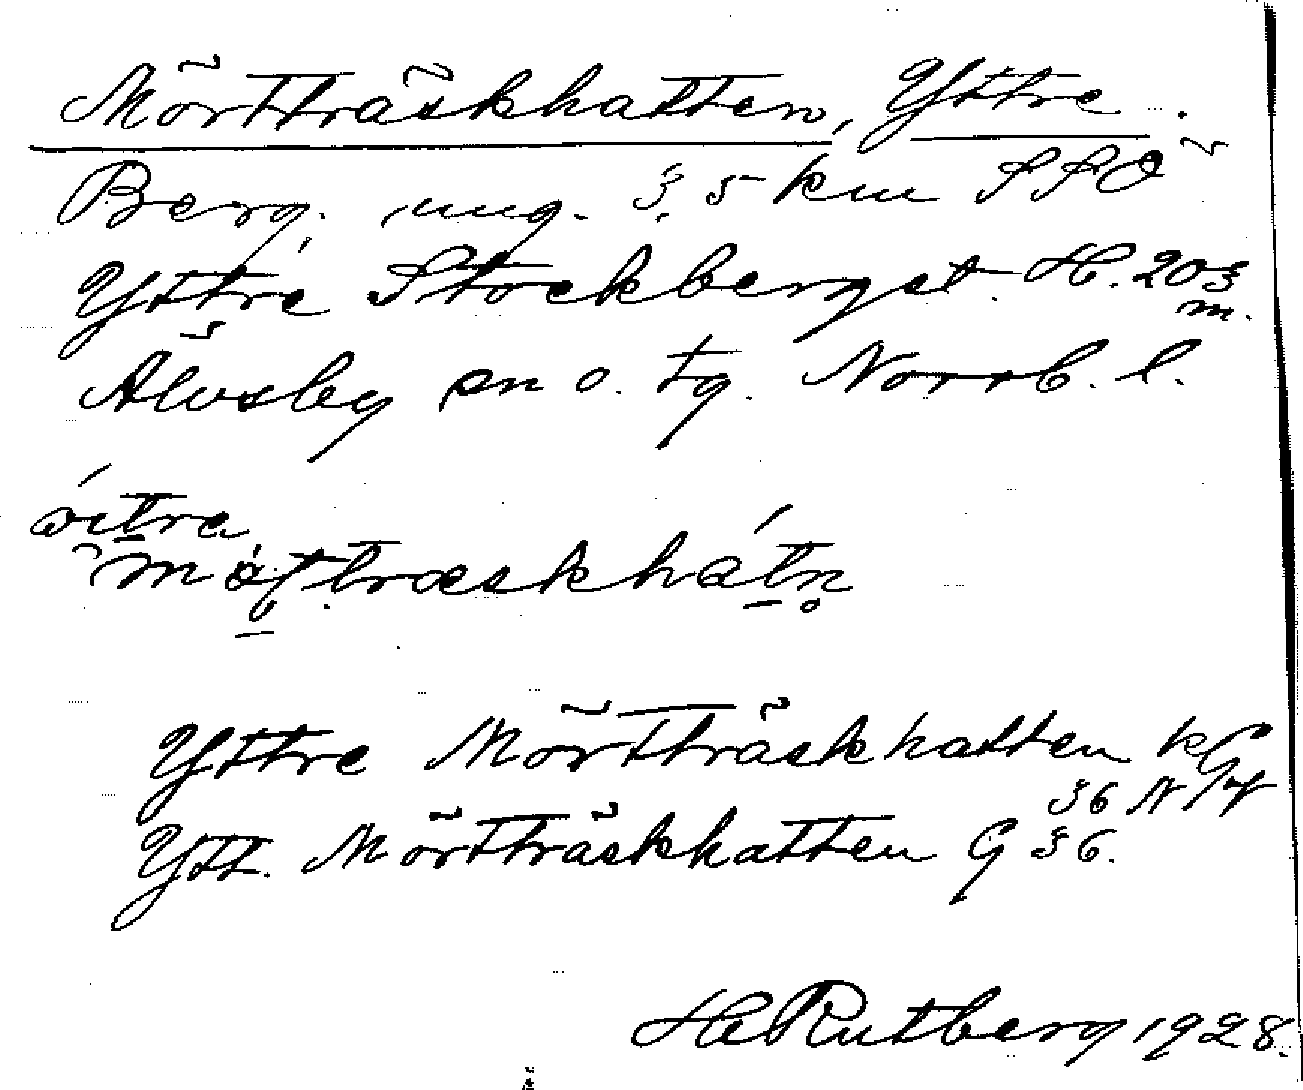 Mörtträskhatten, Yttre.
Berg, ung. 3,5 km SSO
Yttre Stockbergst. H. 203 m.
Älvsby sn o. tg. Norrb. l.
Yttre Mörtträskhatten kG 36 N/4
Ytt. Mörtträskhatten G 36.
H Rutberg 1928.